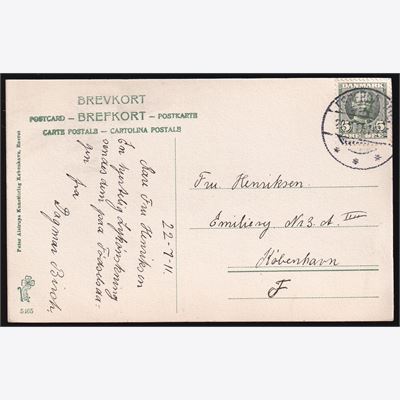 BREVKORT
POSTCARD — BREFKORT — POSTKARTE
CARTE POSTALE — CARTOLINA POSTALE
Peter Alstrups Kunstforlag København, Eneret
5465
DANMARK
5
22-7-11.
Kære Fru Henriksen
En hjertelig Lykønskning
sendes dem paa Fødselsda-
gen fra
Dagmar Birch.
Fru. Henriksen.
Emilievej Nr 3. A
København
F